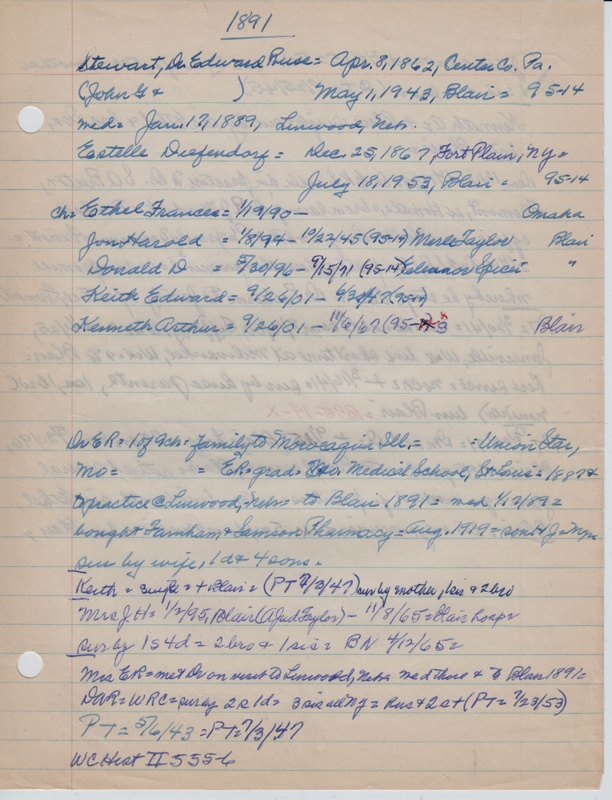 1891
Stewart, Dr. Edward Ruse = Apr. 8, 1862, Center Co. Pa.
(John G & ) May 1, 1943, Blair = 95-14
med = Jan. 17, 1889, Linwood, Nebr.
Estelle Diefendorf = Dec. 25, 1867, Fort Plain, Ny =
July 18, 1953, Blair = 95-14
ch = Ethel Frances = 1/19/90 - Omaha
Jon Harold = 1/8/94 - 10/22/45 (95-14) Merle Taylor Blair
Donald D = 5/30/96 - 9/15/71 (95-14) Spicer "
Keith Edward = 9/26/01 - 6/30/47 (95-14)
Kenneth Arthur = 9/26/01 - 11/6/67 (95- Blair
Dr ER = 1 of 9 ch = family to Ill. = = Union Star,
Mo = = ER = grad. Medical School, St. Louis = 188 &
to practice @ Linwood, Nebr = to Blair 1891 = med 1/17/89 =
bought Farnham & Pharmacy = Aug. 1919 = sons
sur by wife, 1 d & 4 sons.
Keith = single = + Blair = (PT 7/3/47) sur by mother, 1 sis & 2 bro
Mrs J H = 1/2/95, Blair (Taylor) - 11/8/65 = Blair hosp =
sur by 1 s 4 d = 2 bro & 1 sis = BN 4/12/65 =
Mrs ER = met Dr on visit to Linwood, Nebr = med there & to Blair 1891 =
DAR = WRC = sur by 2 s 1 d = 3 sis all NY = & 2 s + (PT = 7/23/53)
PT = 5/6/43 = PT = 7/3/47
WC Hist II 555-6